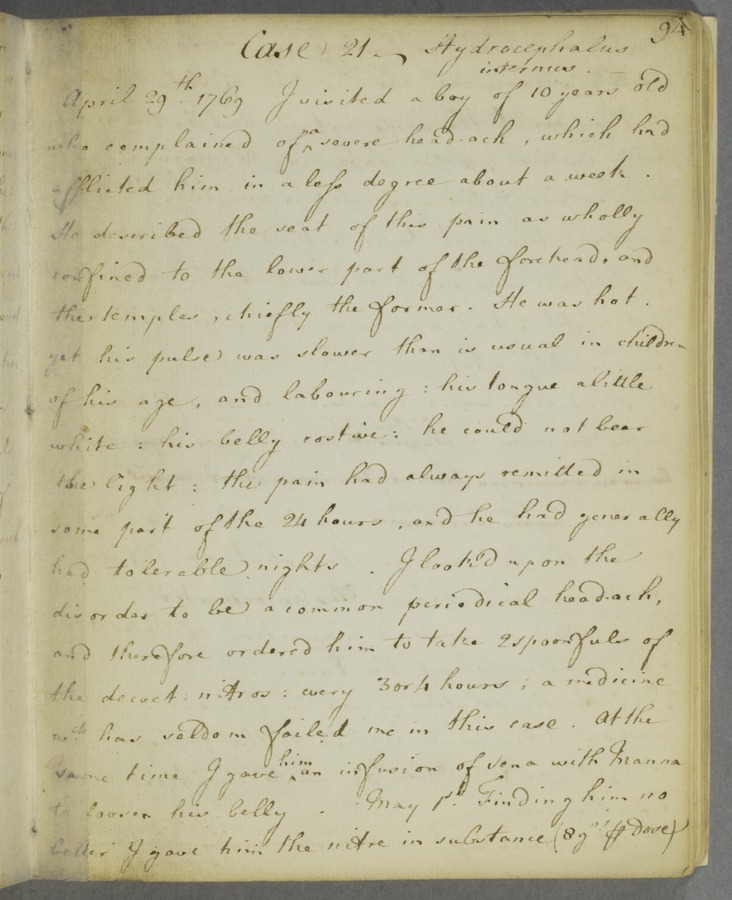 94
Case 21 - Hydrocephalus
internus.
April 29th 1769 I visited a boy of 10 years old
who complained of a severe head-ach, which had
afflicted him in a less degree about a week.
He described the seat of this pain as wholly
confined to the lower part of the forehead, and
the temples, chiefly the former. He was hot.
yet his pulse was slower than is usual in children
of his age, and labouring: his tongue a little
white: his belly costive: he could not bear
the light: the pain had always remitted in
some part of the 24 hours, and he had generally
had tolerable nights. I look'd upon the
disorder to be a common periodical head-ach,
and therefore ordered him to take 2 spoonfuls of
the decoct: nitros: every 3 or 4 hours; a medicine
wch has seldom failed me in this case. At the
same time I gave him an infusion of sena with Manna
to loosen his belly. May 1st. Finding him no
better I gave him the nitre in substance (8 grs p dose)